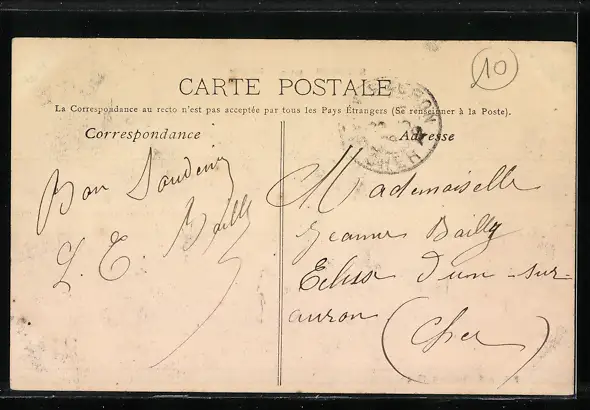 10
CARTE POSTALE
La Correspondance au recto n'est pas acceptée par tous les Pays Étrangers (Se renseigner à la Poste).
Correspondance
Adresse
CHER
Bon Souvenir
L. E. Bailly
Mademoiselle
Jeanne Bailly
Ecluse Dun-sur-
auron (Cher)